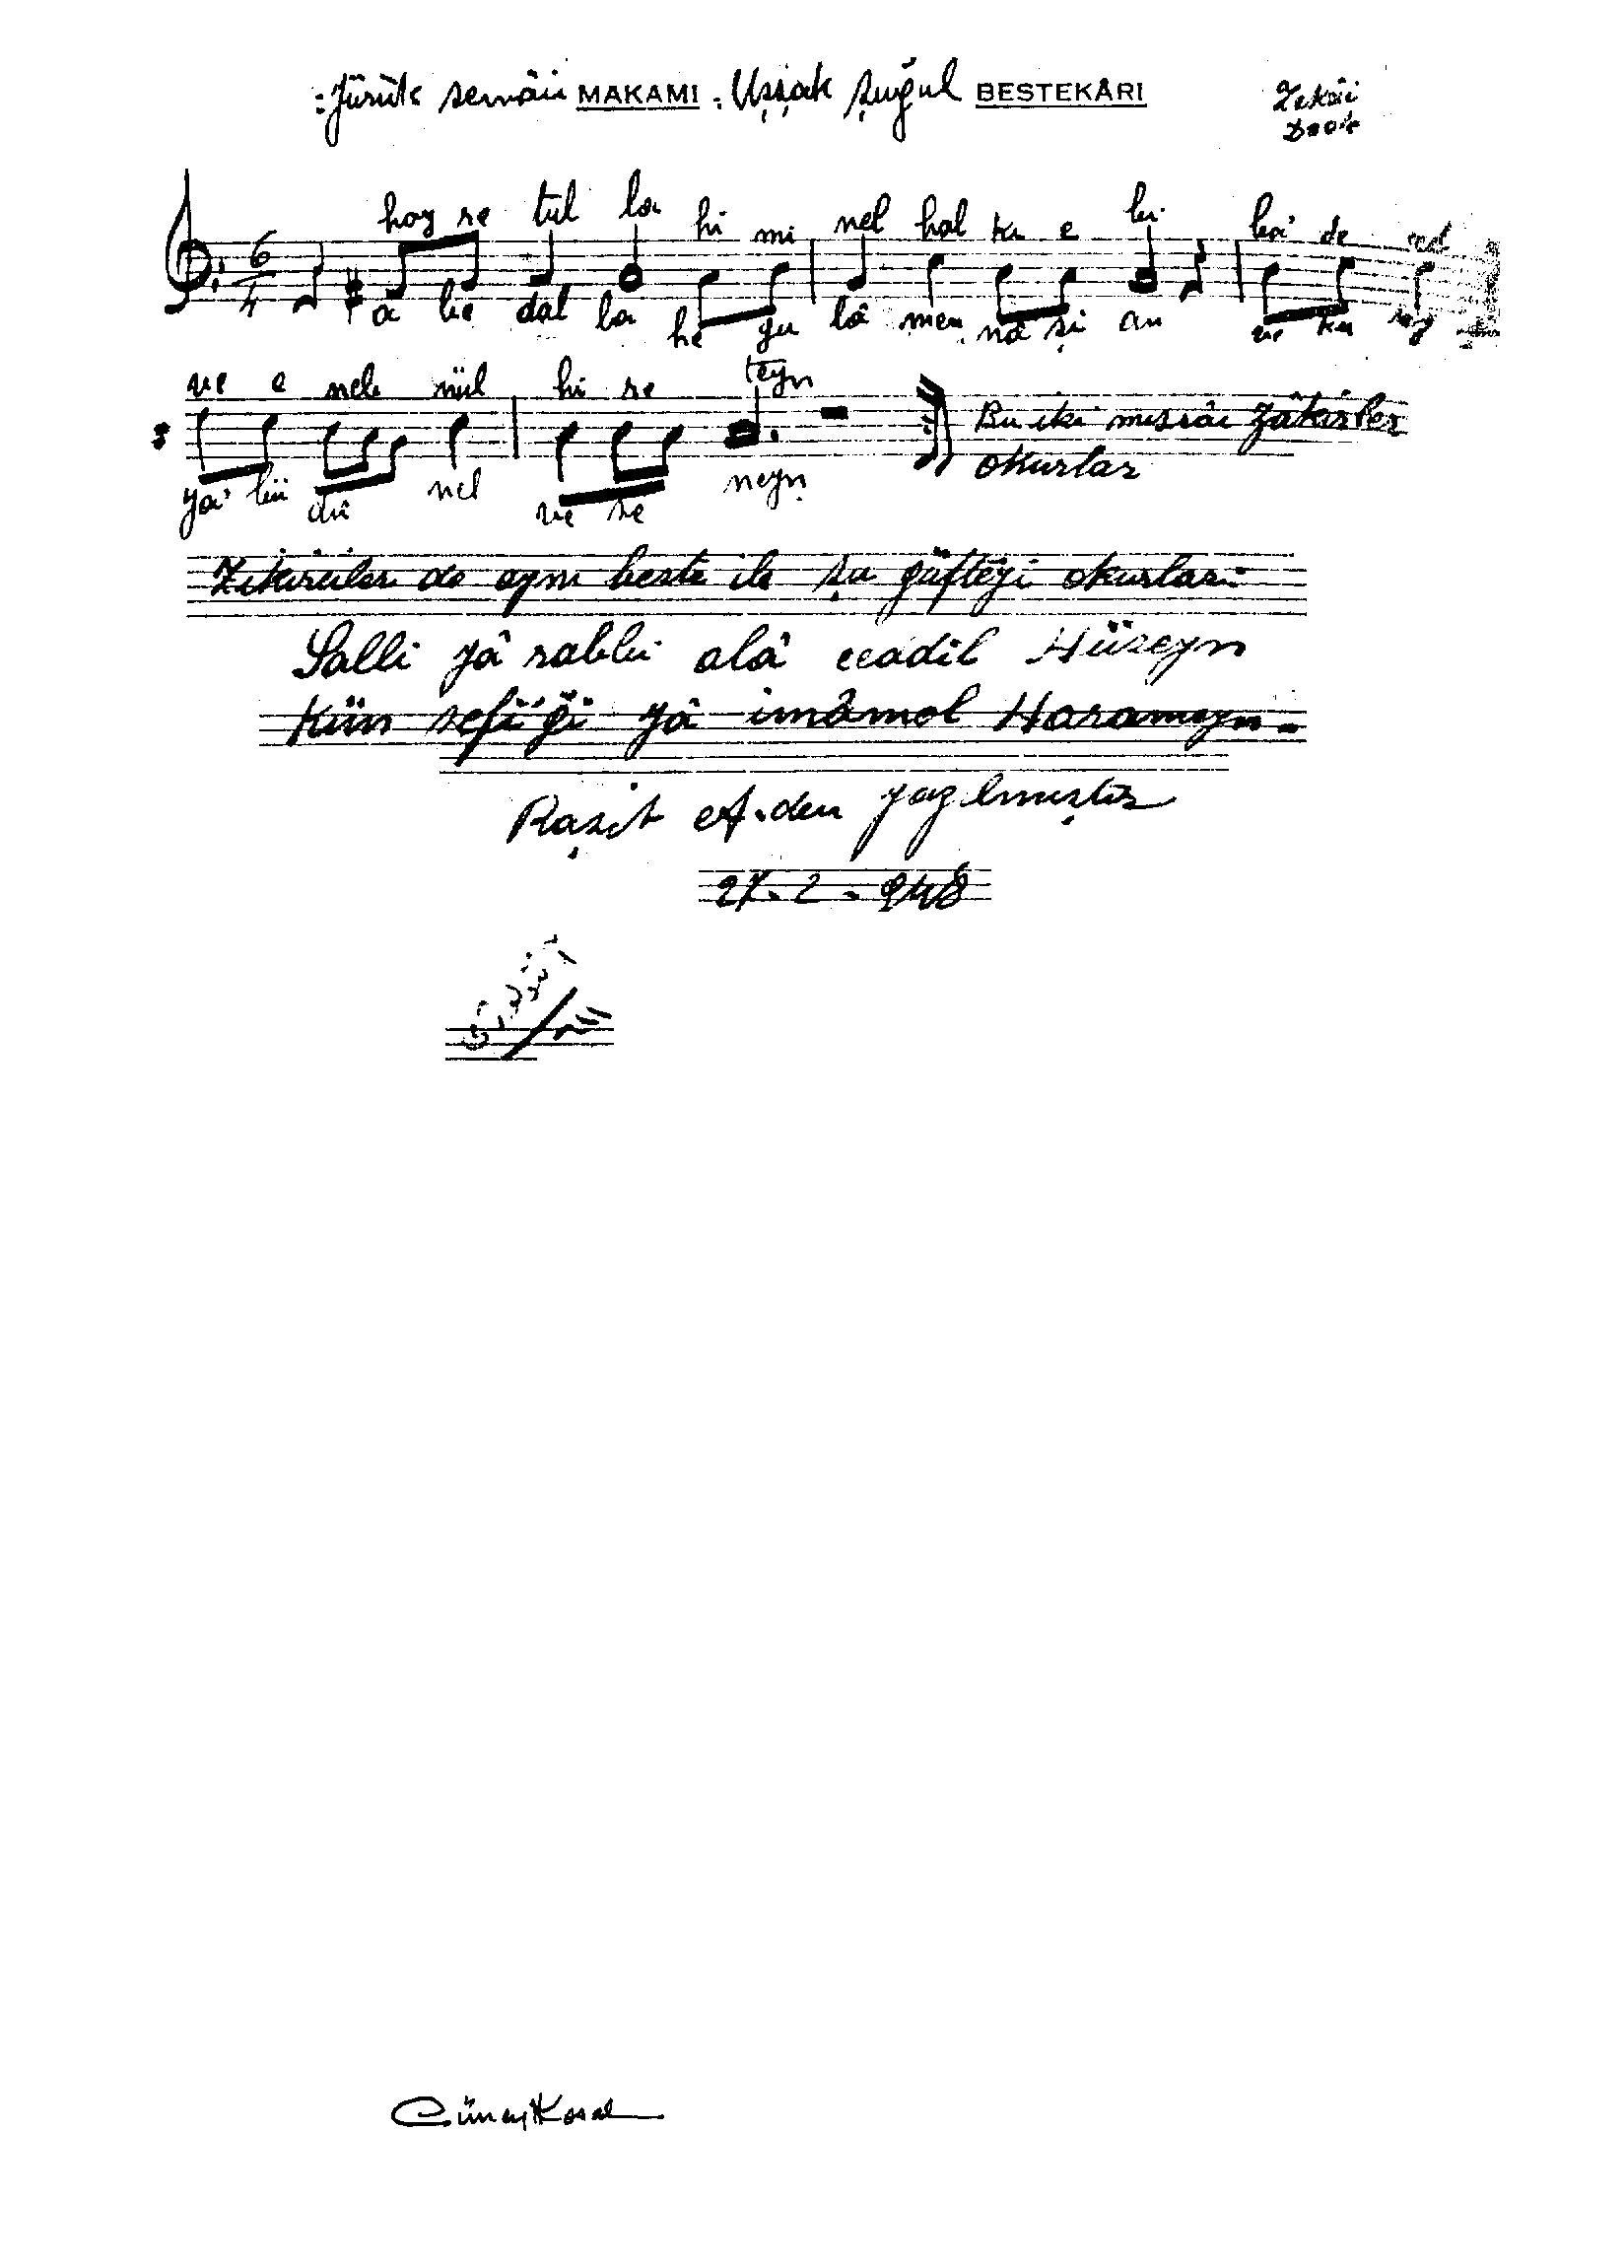 : Yürük semâii MAKAMI : Uşşak şuğul BESTEKÂRI Zekâi
Dede
hay re tul la hi mi nel hal ki e bi ba' de
6/4
a be dal la he gu lâ men nâ şi an ve ku
ve e neb nül hi re teyn
ya' bü dû nel ve se neyn
Bu iki mısrâı Zâkirler
okurlar
Zikirciler de aynı beste ile şu güfteyi okurlar:
Salli yâ rabbi alâ ceddil Hüseyn
Kün şefî'î yâ imâmel Harameyn.
Raşit ef.den yazılmıştır
27.2.948
Cüneyt Kosal